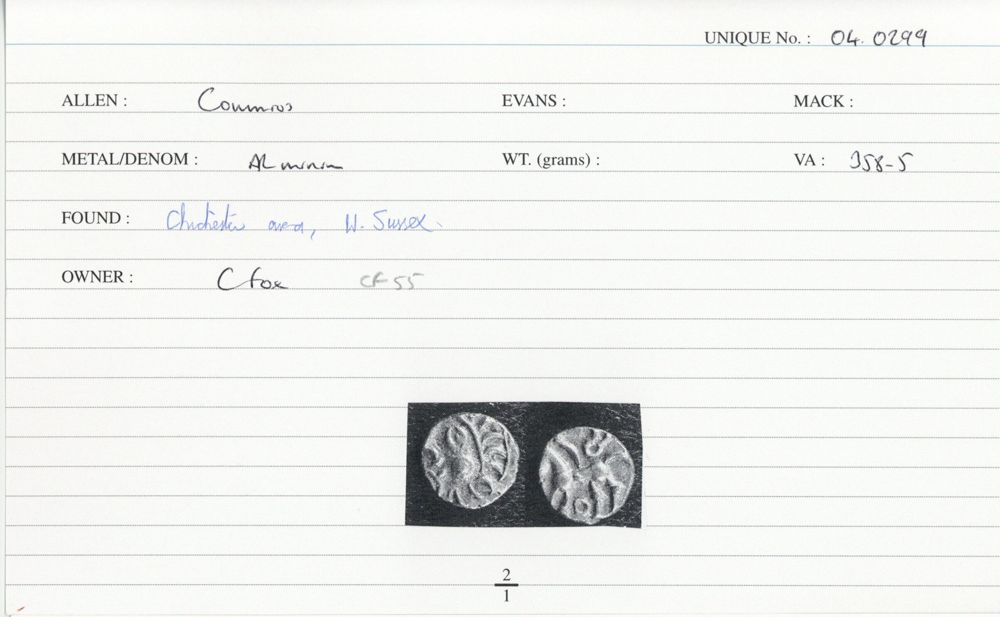 UNIQUE No. : 04.0299
ALLEN : Commios EVANS : MACK :
METAL/DENOM : AR minim WT. (grams) : VA : 358-5
FOUND : Chichester area, W. Sussex.
OWNER : C Fox CF 55
2
1